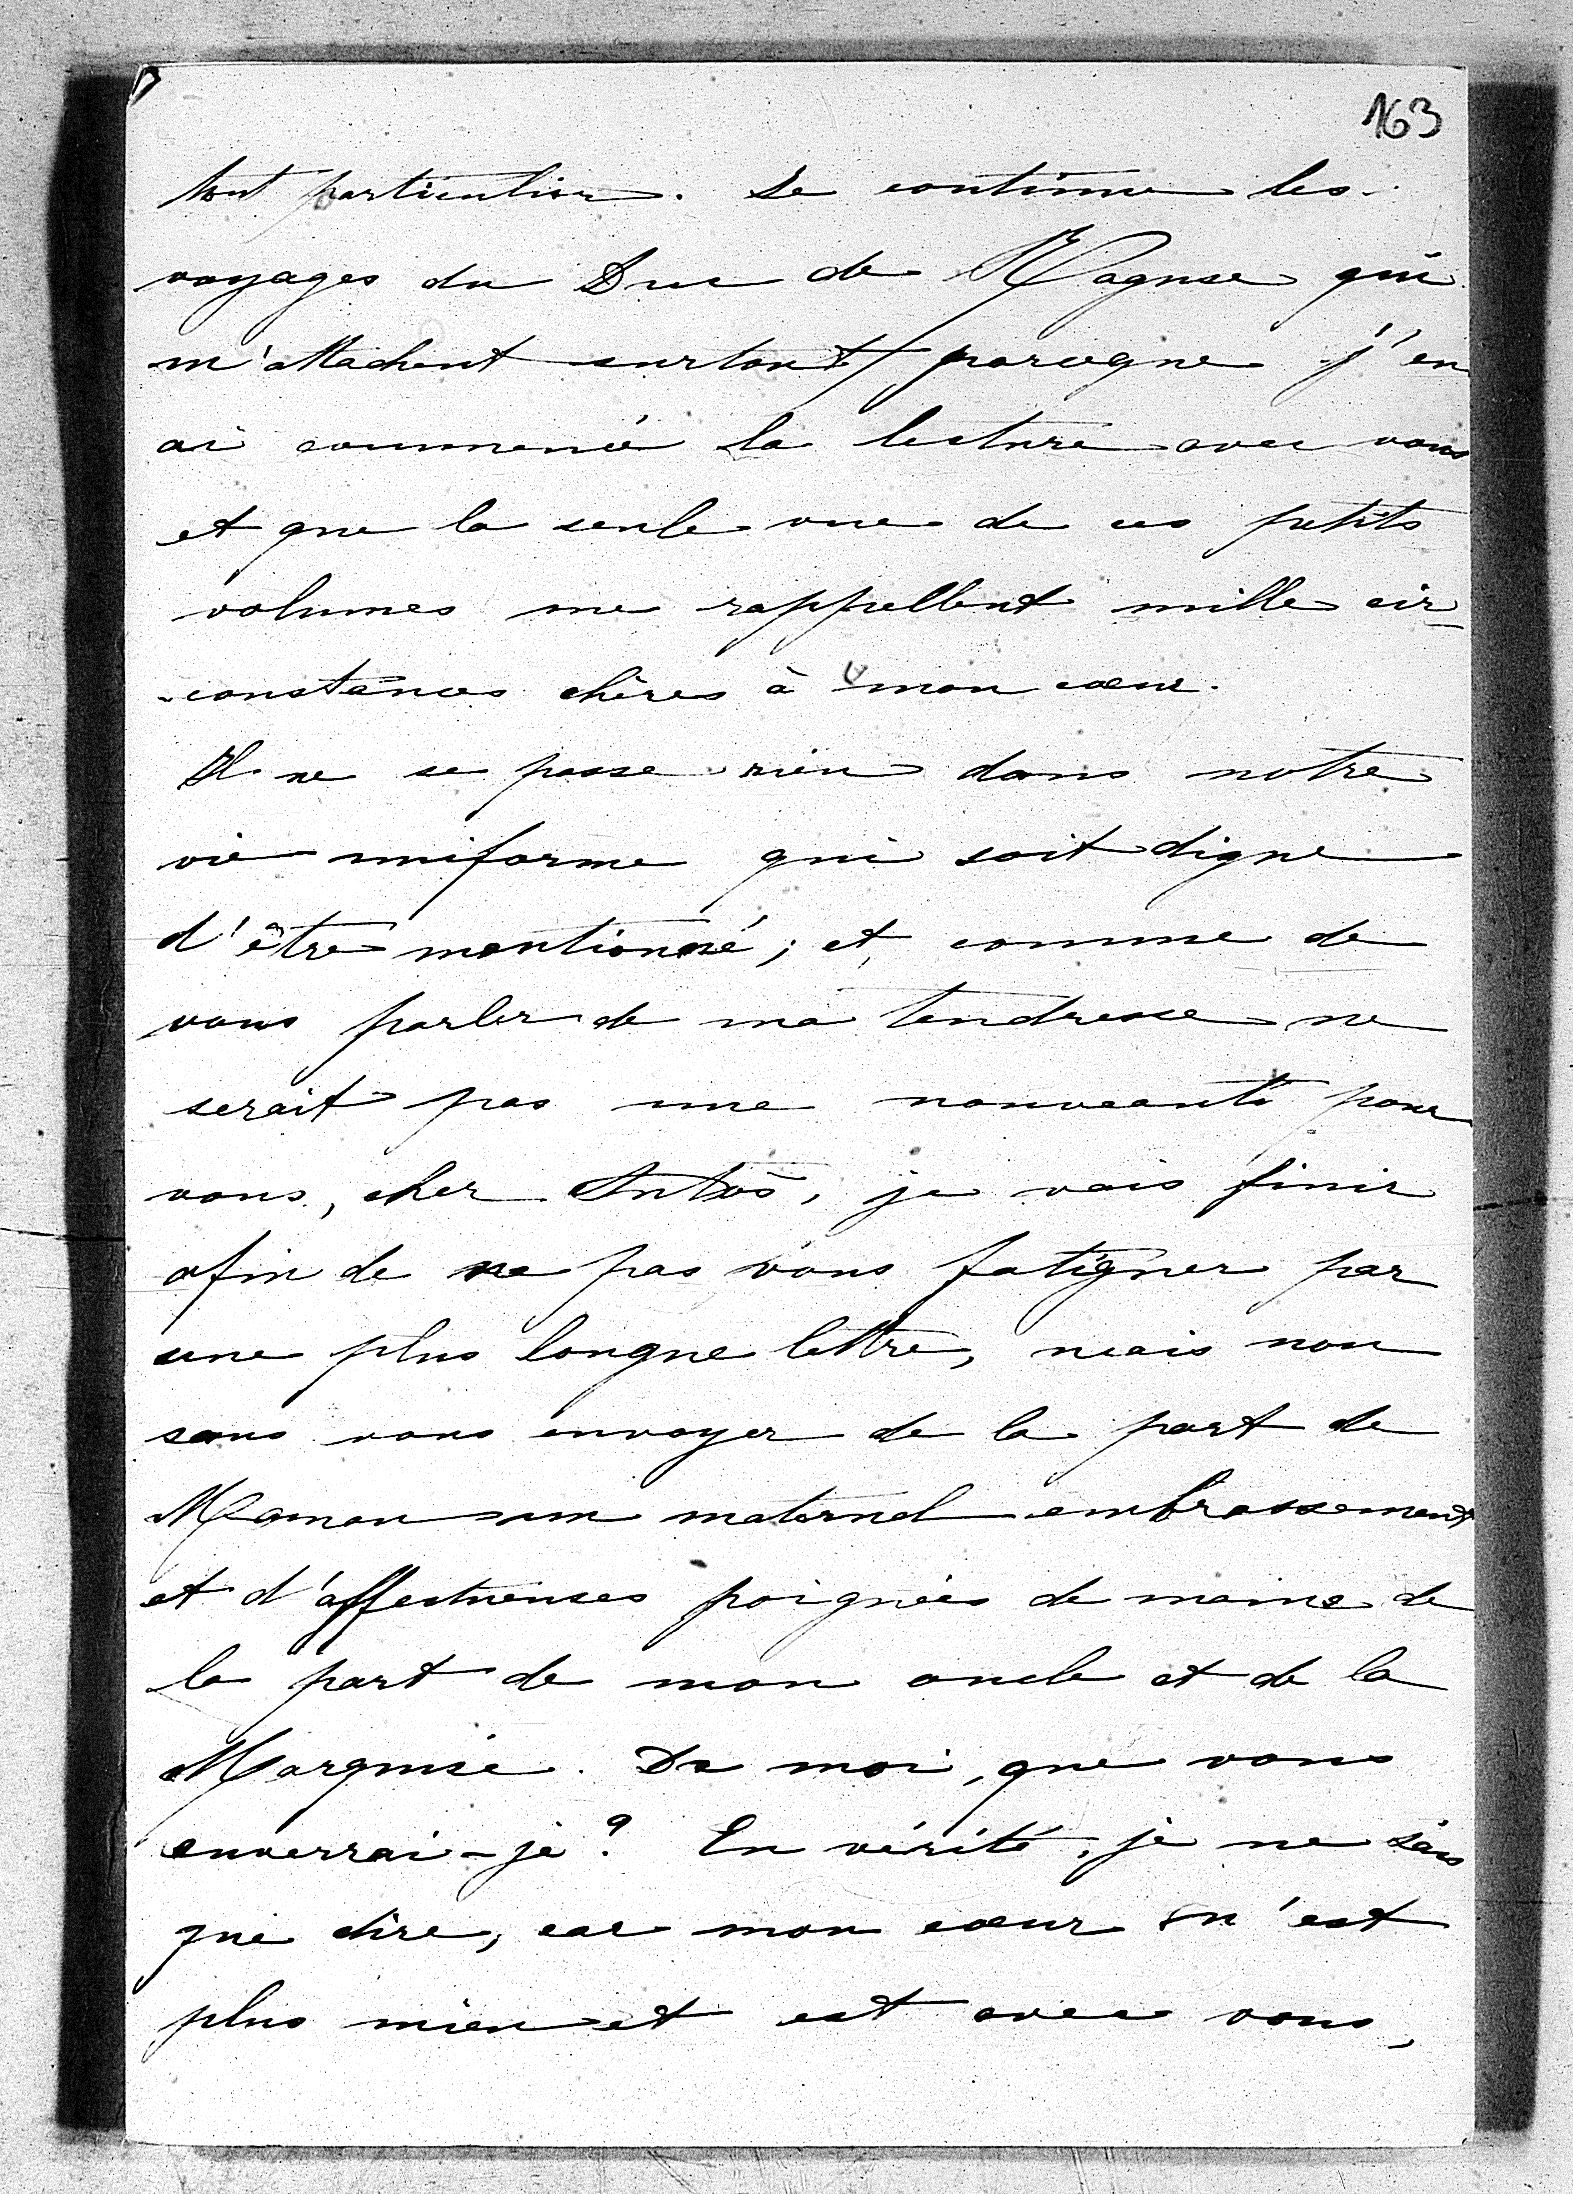 163
tout particulier. Je continue les
voyages du Duc de Raguse qui
m'attachent surtout parceque j'en
ai commencé la lecture avec vous
et que la seule vue de ces petits
volumes me rappellent mille cir-
-constances chères à mon cœur.
Il ne se passe rien dans notre
vie uniforme qui soit digne
d'être mentionné; et comme de
vous parler de ma tendresse ne
serait pas une nouveauté pour
vous, cher Antos, je vais finir
afin de ne pas vous fatiguer par
une plus longue lettre, mais non
sans vous envoyer de la part de
Maman un maternel embrassement
et d'affectueuses poignées de mains de
la part de mon oncle et de la
Marquise. De moi, que vous
enverrai-je? En vérité, je ne sais
que dire, car mon cœur n'est
plus mien et est avec vous,